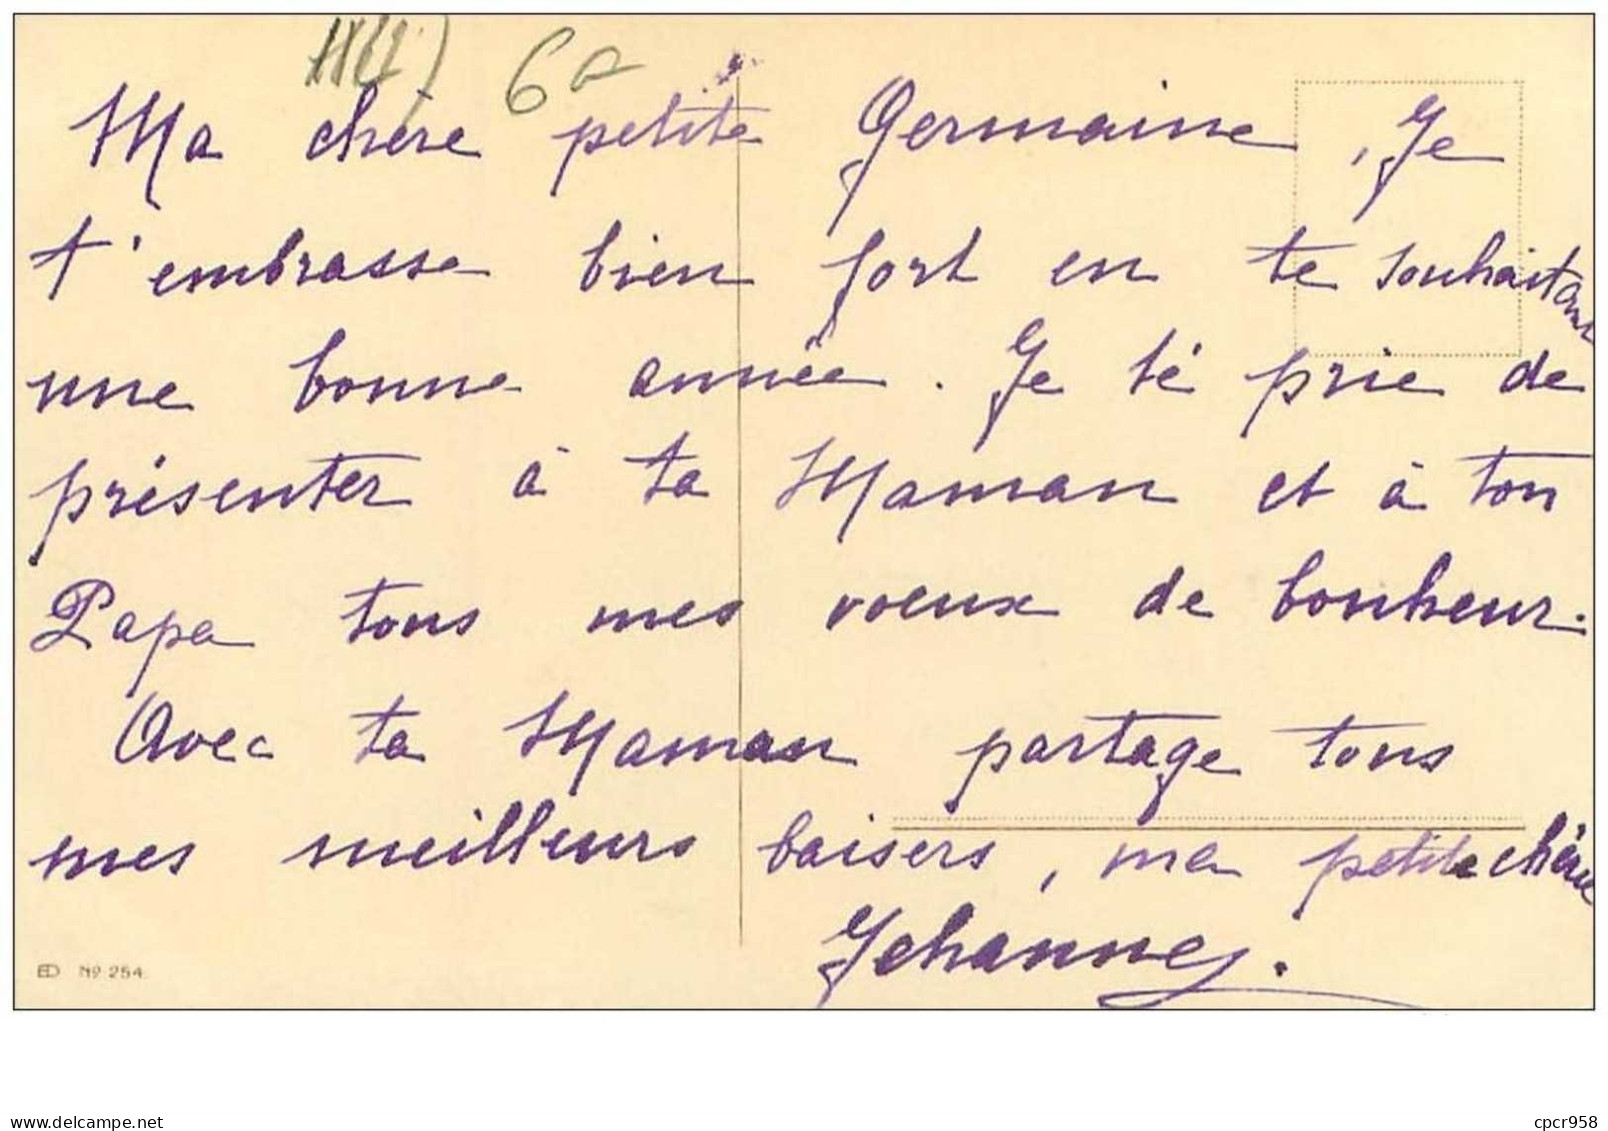 6
Ma chère petite Germaine, Je
t'embrasse bien fort en te souhaitant
une bonne année. Je té prie de
présenter à ta Maman et à ton
Papa tous mes voeux de bonheur.
Avec ta Maman partage tous
mes meilleurs baisers, ma petite chérie
Jehanne.
ED Nº 254.
www.delcampe.net
cpcr958